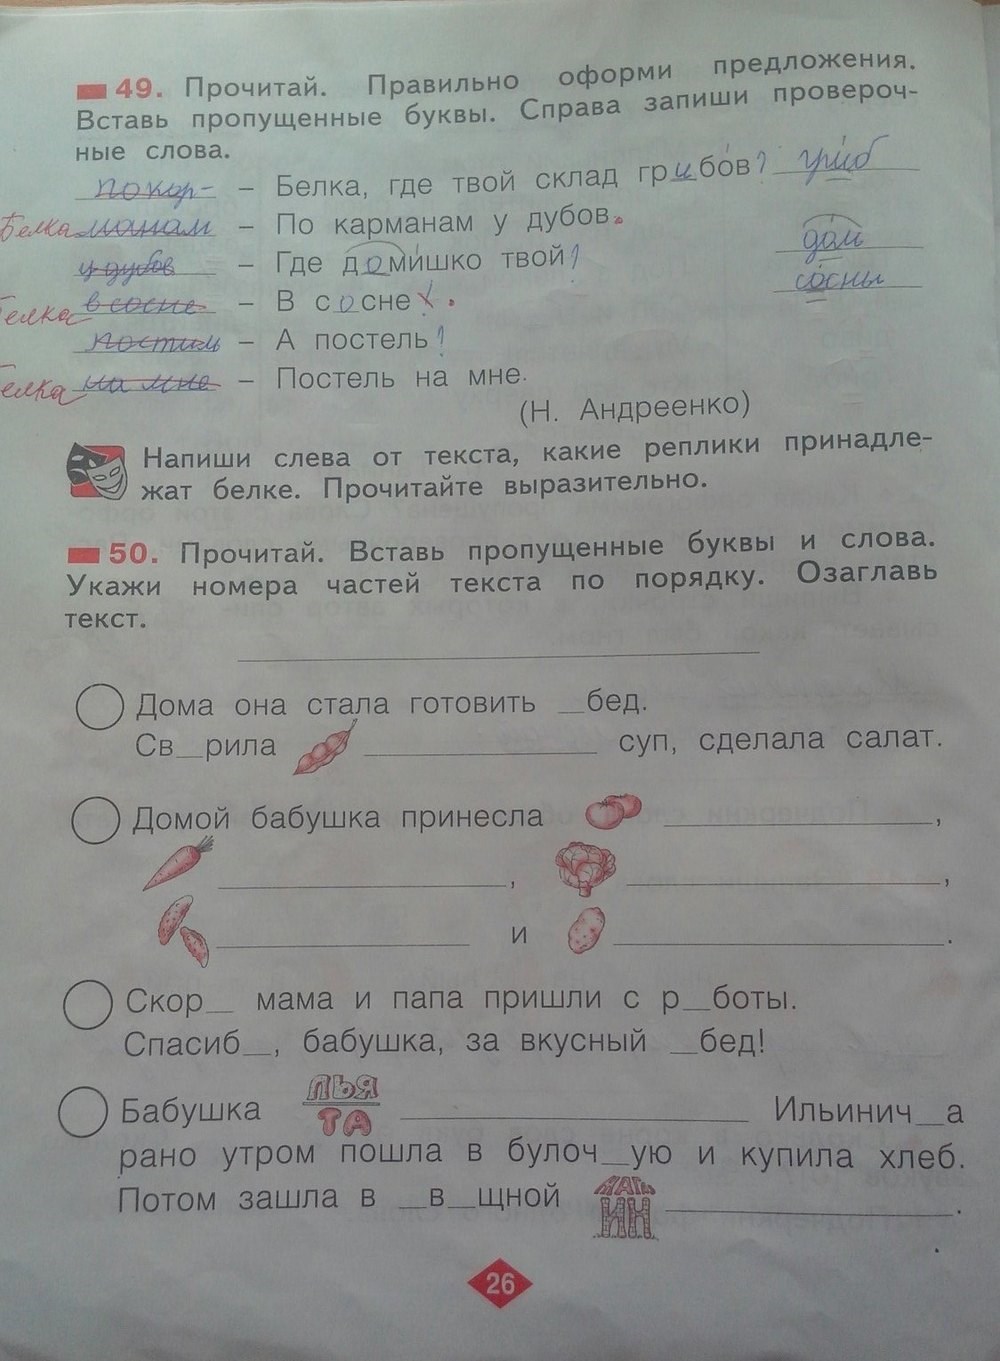 49. Прочитай. Правильно оформи предложения.
Вставь пропущенные буквы. Справа запиши провероч-
ные слова.
по кар- – Белка, где твой склад грибо́в? гри́б
Белка манам – По карманам у дубов.
у дубов – Где доми́шко твой? дом
Белка в сосне – В сосне. со́сны
постиль – А постель?
Белка на мне – Постель на мне.
(Н. Андреенко)
Напиши слева от текста, какие реплики принадле-
жат белке. Прочитайте выразительно.
50. Прочитай. Вставь пропущенные буквы и слова.
Укажи номера частей текста по порядку. Озаглавь
текст.
Дома она стала готовить _бед.
Св_рила ____ суп, сделала салат.
Домой бабушка принесла ____,
____, ____,
____ и ____.
Скор_ мама и папа пришли с р_боты.
Спасиб_, бабушка, за вкусный _бед!
Бабушка ЛЬЯ ТА ____ Ильинич_а
рано утром пошла в булоч_ую и купила хлеб.
Потом зашла в _в_щной МАГ ИН ____.
26